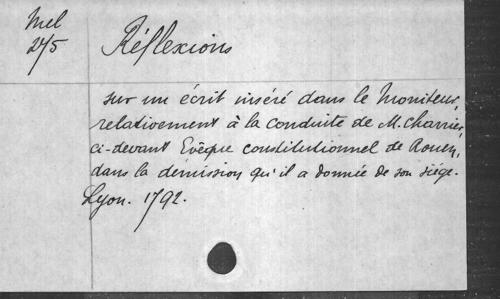 Mel
275
Réflexions
sur un écrit inséré dans le Moniteur,
relativement à la conduite de M. Charrier,
ci-devant Evêque constitutionnel de Rouen,
dans la démission qu'il a donnée de son siége.
Lyon. 1792.